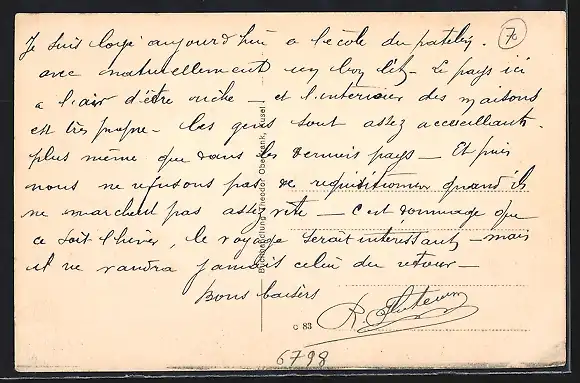 Je suis logé aujourd'hui a l'école du patelin.
avec naturellement un bon lit – Le pays ici
a l'air d'être riche – et l'intérieur des maisons
est très propre – les gens sont assez acceuillants
plus même que dans les derniers pays – Et puis
nous ne refusons pas de requisitionner quand ils
ne marchent pas assez vite – c'est dommage que
ce soit l'hiver, le voyage serait intéressant – mais
il ne vaudra jamais celui du retour –
Bons baisers
R.
70
Buchhandlung Theodor Obertank, Kusel
C 83
6798